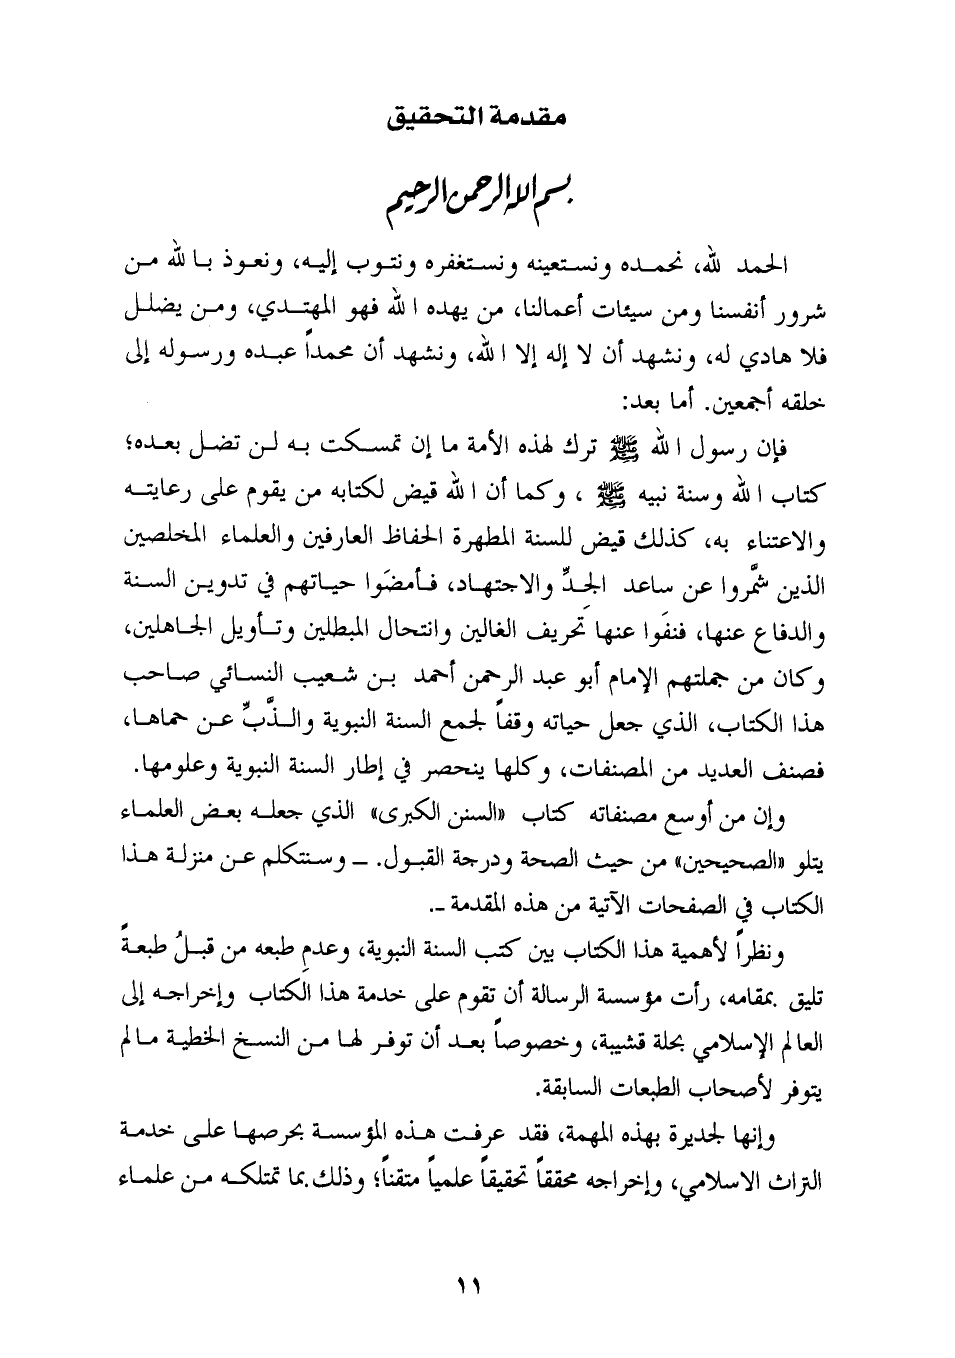 مقدمة التحقيق
بسم الله الرحمن الرحيم
الحمد لله، نحمده ونستعينه ونستغفره ونتوب إليه، ونعوذ بالله من
شرور أنفسنا ومن سيئات أعمالنا، من يهده الله فهو المهتدي، ومن يضلل
فلا هادي له، ونشهد أن لا إله إلا الله، ونشهد أن محمداً عبده ورسوله إلى
خلقه أجمعين. أما بعد:
فإن رسول الله ﷺ ترك لهذه الأمة ما إن تمسكت به لن تضل بعده؛
كتاب الله وسنة نبيه ﷺ ، وكما أن الله قيض لكتابه من يقوم على رعايته
والاعتناء به، كذلك قيض للسنة المطهرة الحفاظ العارفين والعلماء المخلصين
الذين شمَّروا عن ساعد الجدِّ والاجتهاد، فأمضَوا حياتهم في تدوين السنة
والدفاع عنها، فنفَوا عنها تحريف الغالين وانتحال المبطلين وتأويل الجاهلين،
وكان من جملتهم الإمام أبو عبد الرحمن أحمد بن شعيب النسائي صاحب
هذا الكتاب، الذي جعل حياته وقفاً لجمع السنة النبوية والذَّبِّ عن حماها،
فصنف العديد من المصنفات، وكلها ينحصر في إطار السنة النبوية وعلومها.
وإن من أوسع مصنفاته كتاب «السنن الكبرى» الذي جعله بعض العلماء
يتلو «الصحيحين» من حيث الصحة ودرجة القبول. ــ وسنتكلم عن منزلة هذا
الكتاب في الصفحات الآتية من هذه المقدمة ــ.
ونظراً لأهمية هذا الكتاب بين كتب السنة النبوية، وعدمِ طبعه من قبلُ طبعةً
تليق بمقامه، رأت مؤسسة الرسالة أن تقوم على خدمة هذا الكتاب وإخراجه إلى
العالم الإسلامي بحلة قشيبة، وخصوصاً بعد أن توفر لها من النسخ الخطية مالم
يتوفر لأصحاب الطبعات السابقة.
وإنها لجديرة بهذه المهمة، فقد عرفت هذه المؤسسة بحرصها على خدمة
التراث الاسلامي، وإخراجه محققاً تحقيقاً علمياً متقناً؛ وذلك بما تمتلكه من علماء
١١